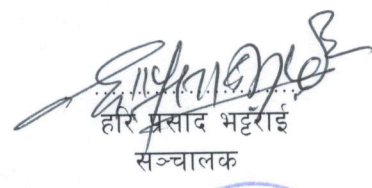 हरि प्रसाद भट्टराई
सञ्चालक